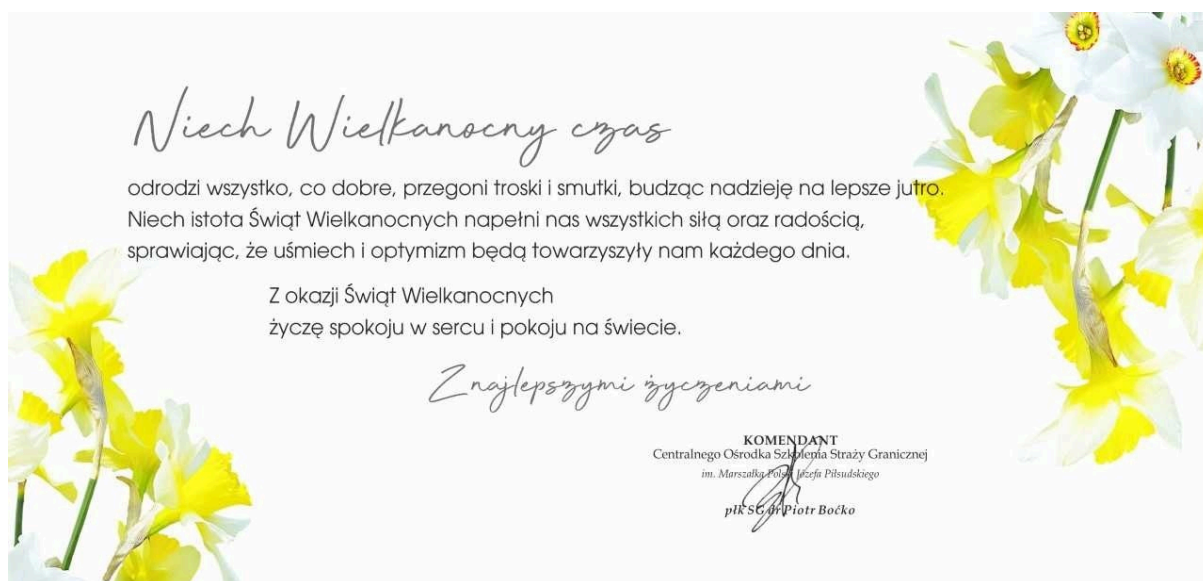 Niech Wielkanocny czas
odrodzi wszystko, co dobre, przegoni troski i smutki, budząc nadzieję na lepsze jutro.
Niech istota Świąt Wielkanocnych napełni nas wszystkich siłą oraz radością,
sprawiając, że uśmiech i optymizm będą towarzyszyły nam każdego dnia.
Z okazji Świąt Wielkanocnych
życzę spokoju w sercu i pokoju na świecie.
Z najlepszymi życzeniami
KOMENDANT
Centralnego Ośrodka Szkolenia Straży Granicznej
im. Marszałka Polski Józefa Piłsudskiego
płk SG dr Piotr Boćko